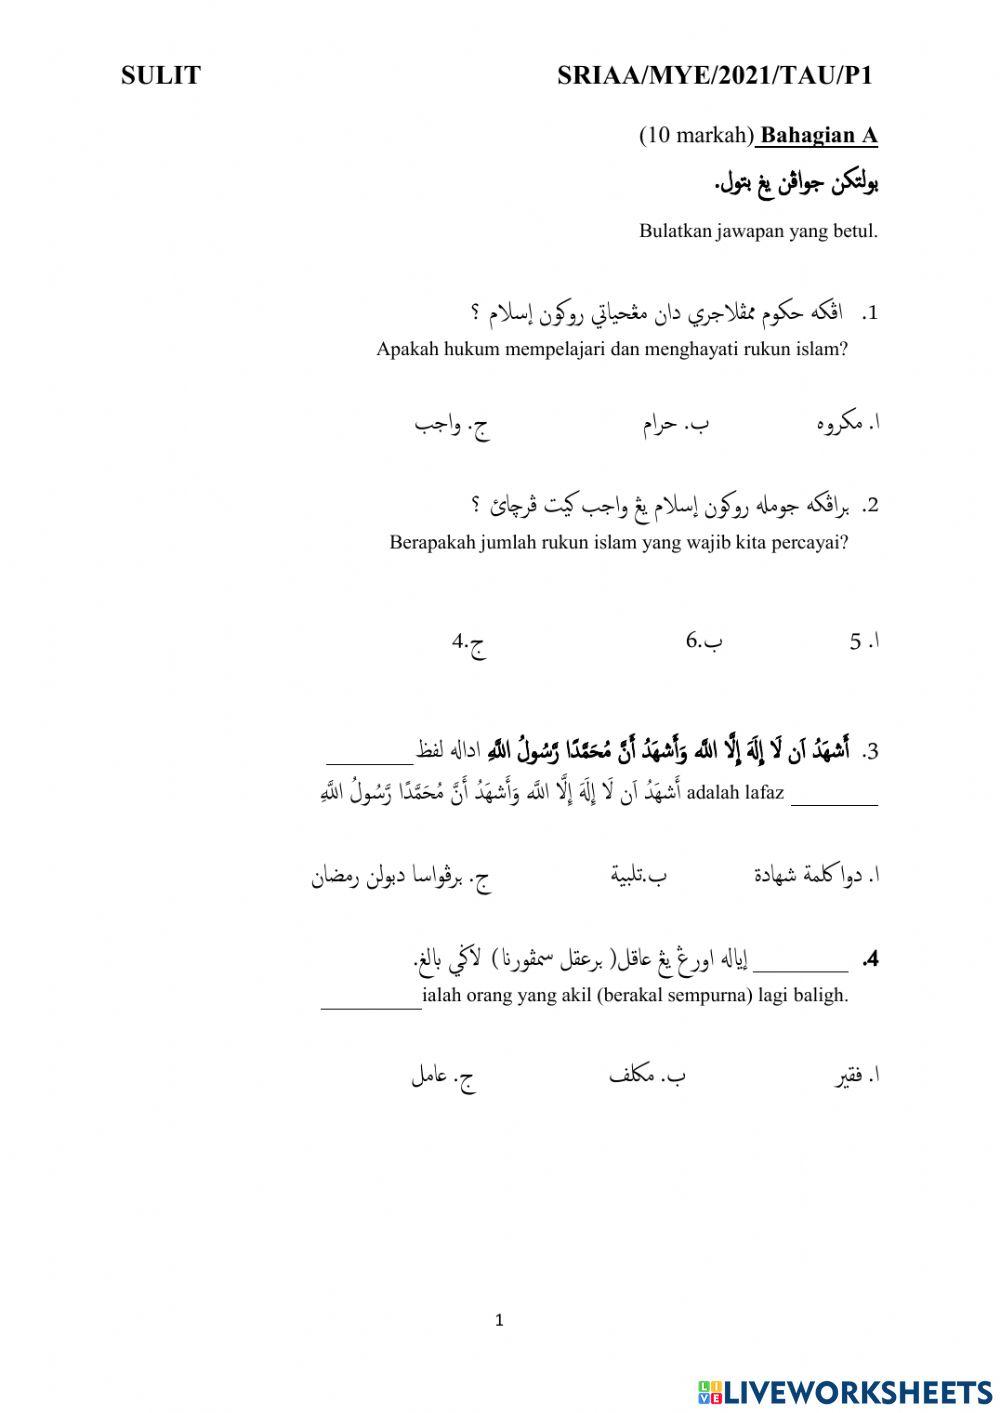 SULIT SRIAA/MYE/2021/TAU/P1
(10 markah) Bahagian A
بولتكن جواڤن يڠ بتول.
Bulatkan jawapan yang betul.
1. اڤكه حكوم ممڤلاجري دان مڠحياتي روكون إسلام ؟
Apakah hukum mempelajari dan menghayati rukun islam?
ا. مكروه ب. حرام ج. واجب
2. براڤكه جومله روكون إسلام يڠ واجب كيت ڤرچائ ؟
Berapakah jumlah rukun islam yang wajib kita percayai?
ا. 5 ب.6 ج.4
3. أَشهَدُ اَن لَا إِلَهَ إِلَّا اللَّه وَأَشهَدُ أَنَّ مُحَمَّدًا رَّسُولُ اللَّهِ اداله لفظ________
________ adalah lafaz أَشهَدُ اَن لَا إِلَهَ إِلَّا اللَّه وَأَشهَدُ أَنَّ مُحَمَّدًا رَّسُولُ اللَّهِ
ا. دوا كلمة شهادة ب.تلبية ج. برڤواسا دبولن رمضان
4. _________ إياله اورڠ يڠ عاقل( برعقل سمڤورنا) لاݢي بالغ.
_________ialah orang yang akil (berakal sempurna) lagi baligh.
ا. فقير ب. مكلف ج. عامل
1
LIVE LIVEWORKSHEETS